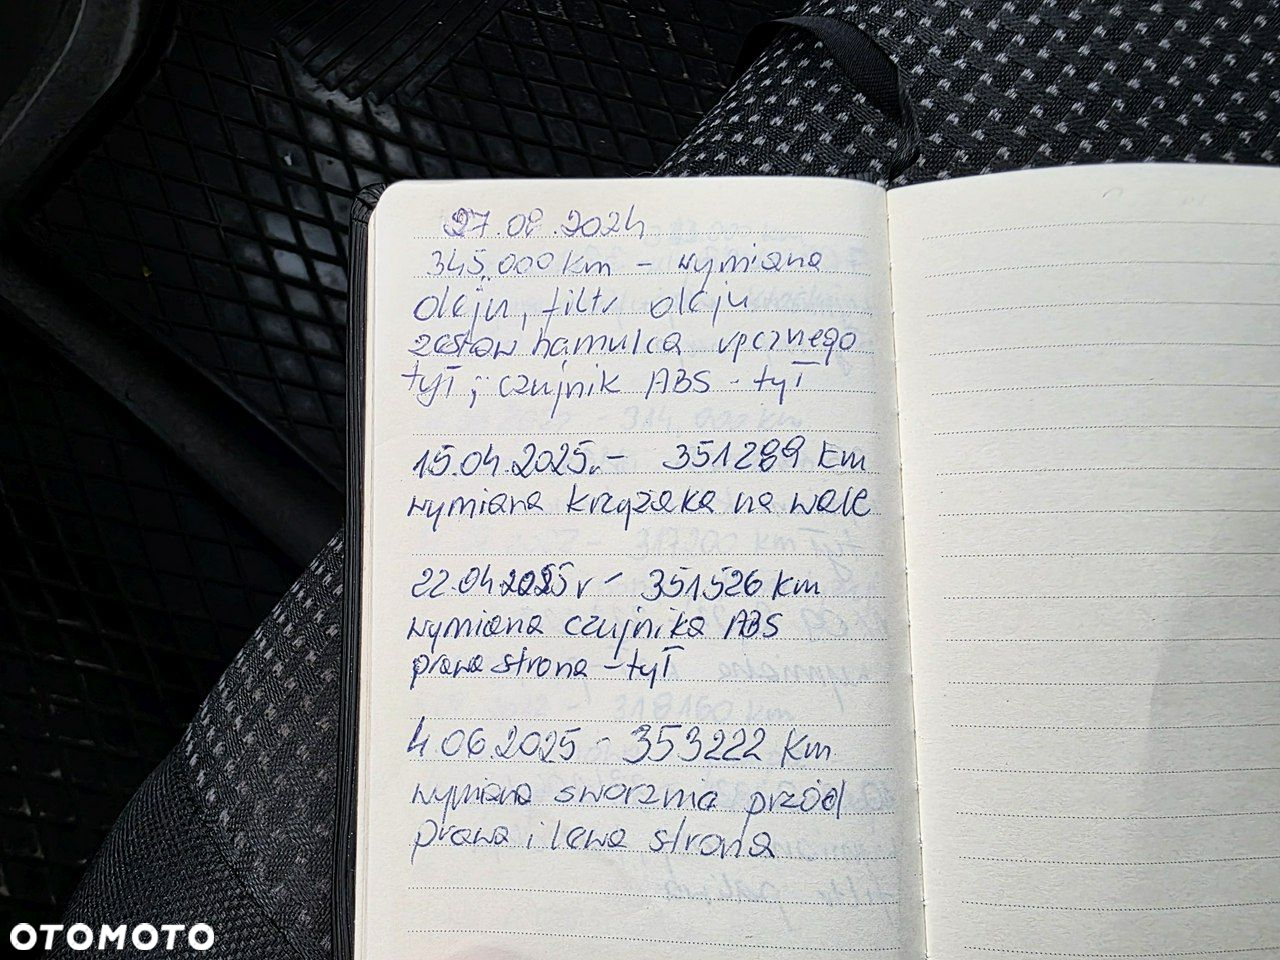 27.08.2024
345.000 km - wymiana
oleju, filtr oleju
zestaw hamulca ręcznego
tył, czujnik ABS - tył
15.04.2025r - 351289 km
wymiana krzyżaka na wale
22.04.2025r - 351526 km
wymiana czujnika ABS
prawa strona - tył
4.06.2025 - 353222 km
wymiana sworznia przód
prawa i lewa strona
OTOMOTO